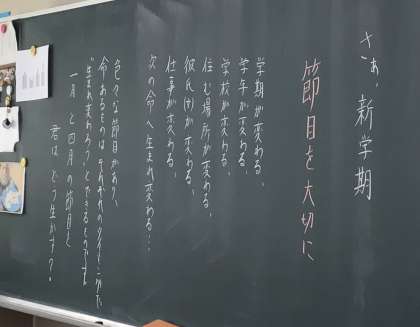 さぁ、新学期
節目を大切に
学期が変わる、
学年が変わる、
学校が変わる、
住む場所が変わる、
彼氏(女)が変わる、
仕事が変わる、
次の命へ生まれ変わる…
色々な節目があり、
命あるものはそれぞれのタイミングで
"生まれ変わろう"とできるものです。
一月と四月の節目を
君はどう生かす?